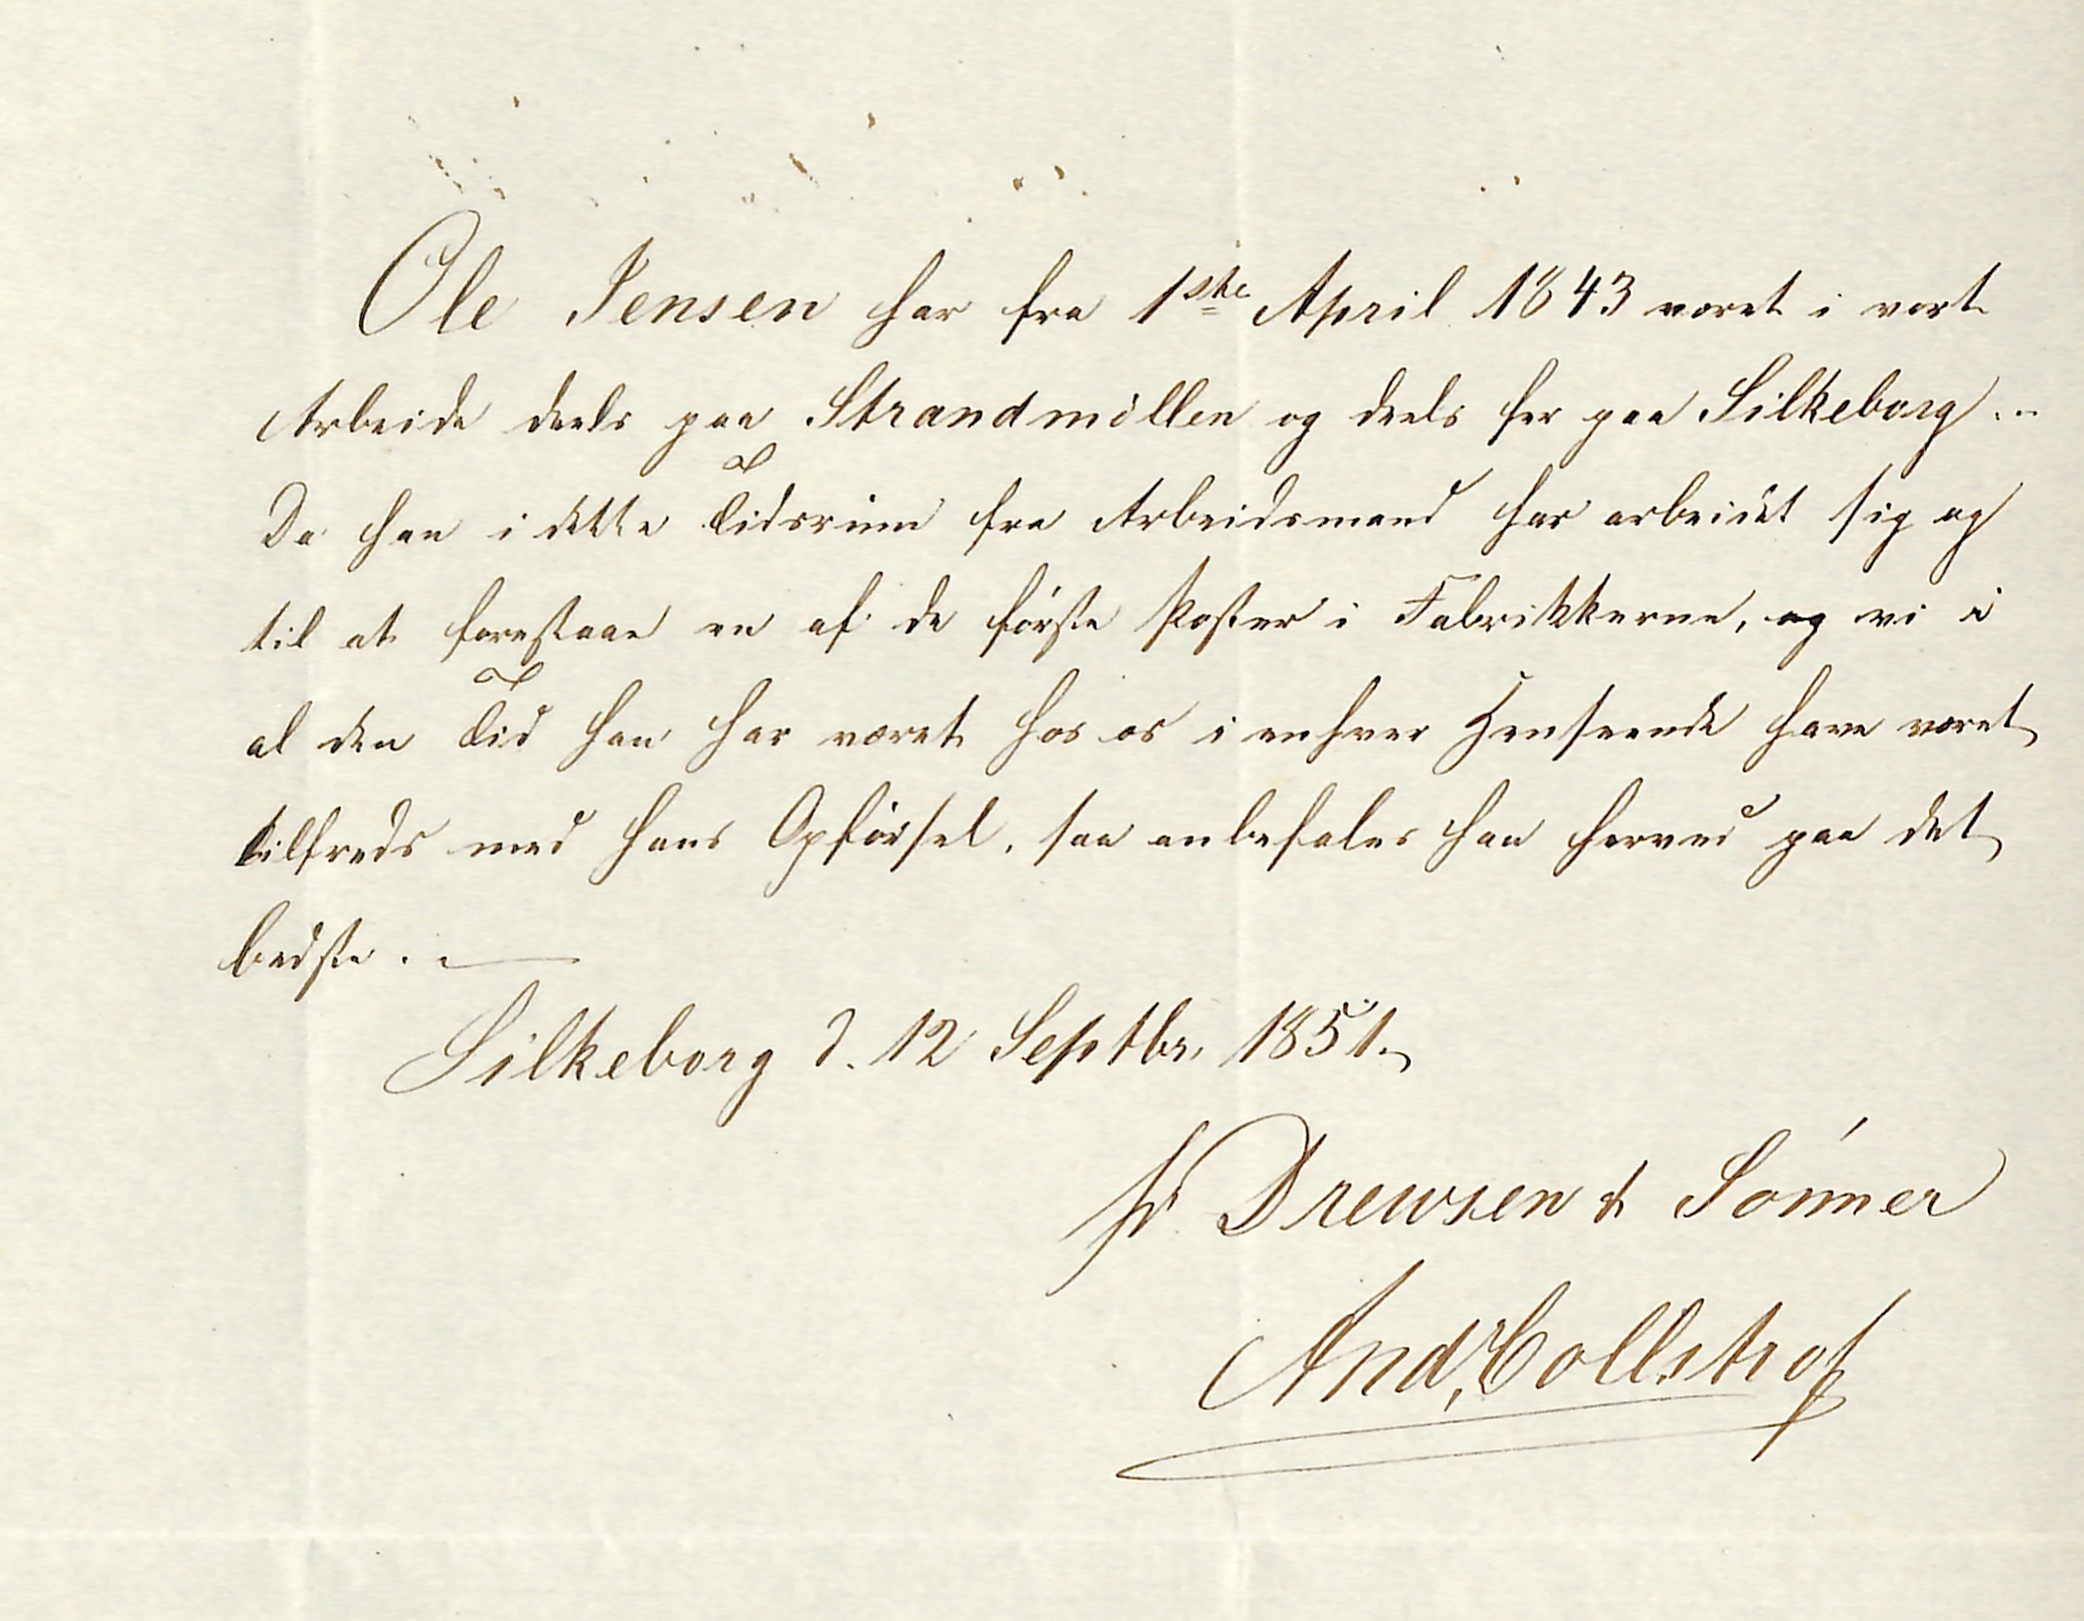 Ole Jensen har fra 1ste April 1843 været i vort
Arbeide deels paa Strandmöllen og deels her paa Silkeborg. -
Da han i dette Tidsrum fra Arbeidsmand har arbeidet sig op
til at forestaae en af de förste Poster i Fabrikkerne, og vi i
al den Tid han har været hos os i enhver Henseende have været
tilfreds med hans Opförsel, saa anbefales han herved paa det
bedste. —
Silkeborg d. 12 Septbr. 1851.
pr Drewsen & Sönner
And. Collstrop